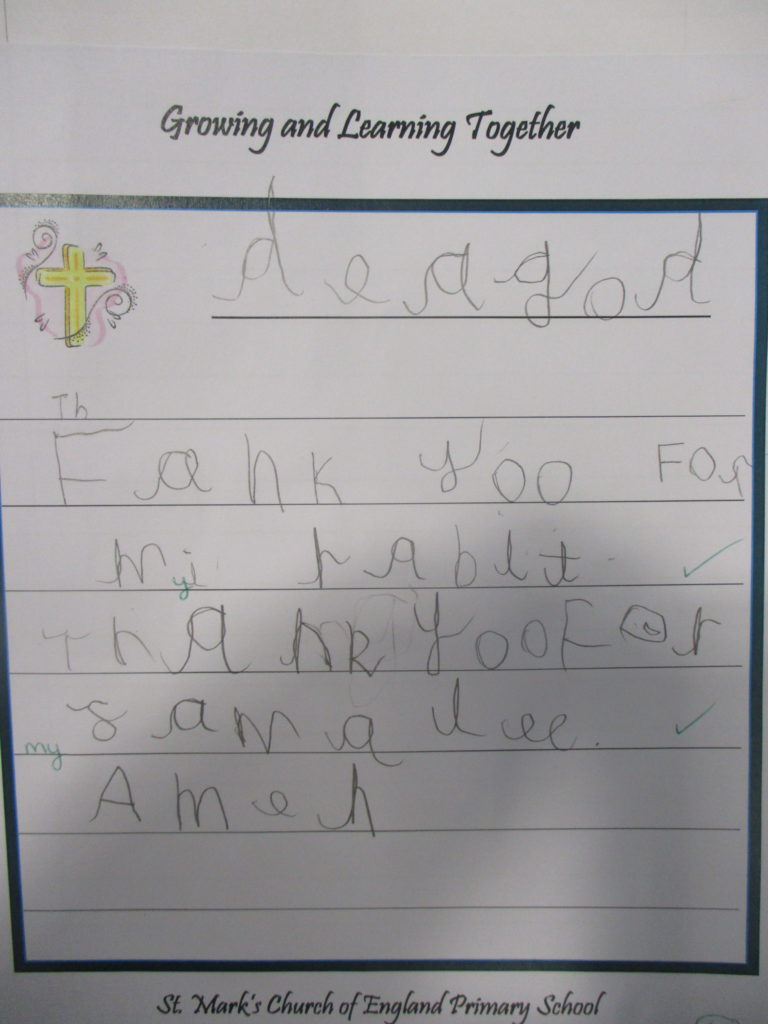 Growing and Learning Together
dea god
Th
Fank yoo For
my mi rabit
Thank yoo For
my famalee.
Amen
St. Mark's Church of England Primary School